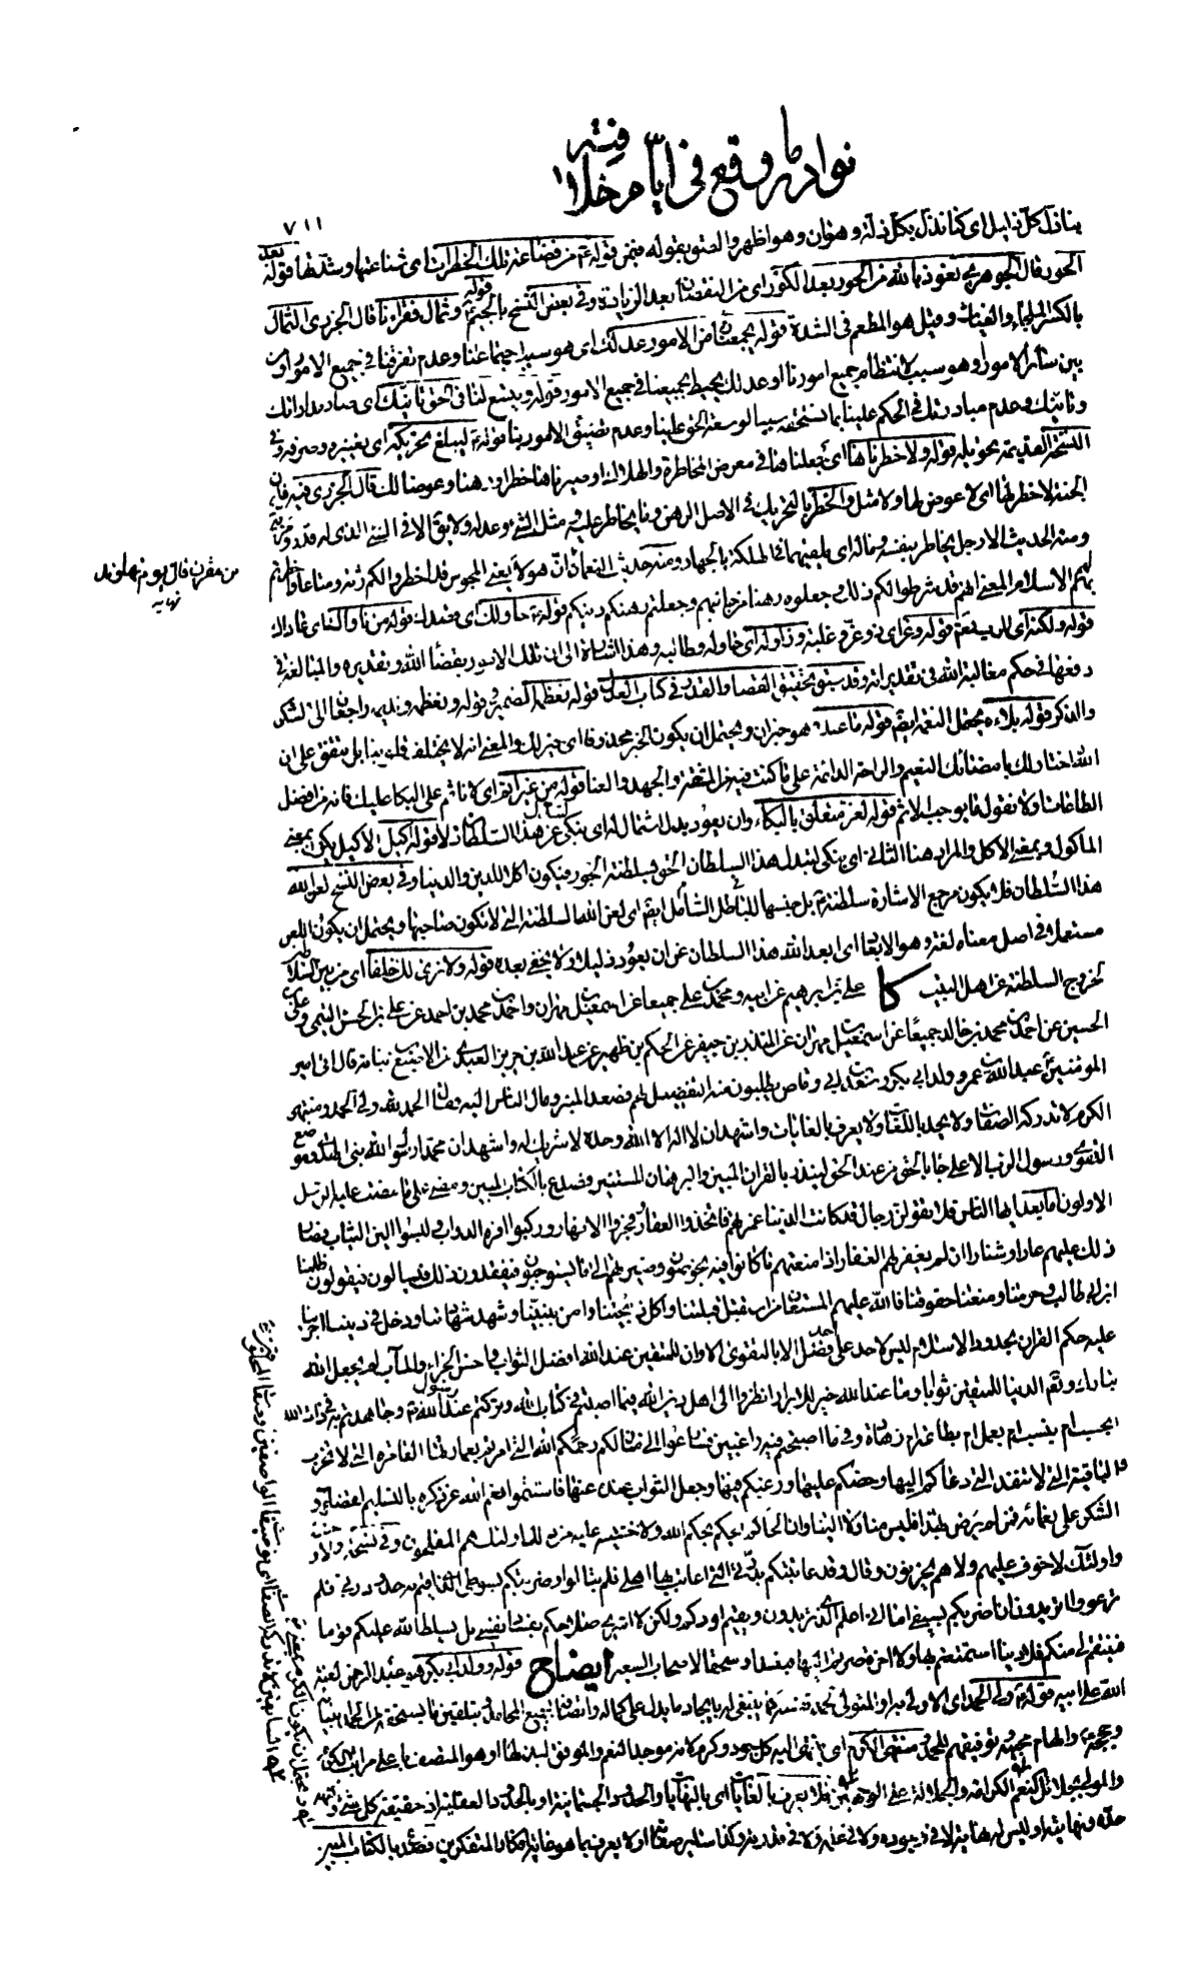 نوادر ما وقع في ايام خلافته
٧١١
بنا ذل كل ذليل اى كنا نذل بكل ذلة وهوان وهو اظهر والصق بقوله فمن قوله من فضاعة تلك الخطرات اى شناعتها وشدتها قوله بعد
الحور قال الجوهرى نعوذ بالله من الحور بعد الكور اى من النقصان بعد الزيادة وفي بعض النسخ بالجيم قوله وثمال فقرائنا قال الجزرى الثمال
بالكسر الملجاء والغياث وقيل هو المطعم في الشدة قوله يجمعنا من الامور عدلك اى هو سبب اجتماعنا وعدم تفرقنا في جميع الامور او من
بين سائر الامور او هو سبب لانتظام جميع امورنا او عدلك يحيط بجميعنا في جميع الامور قوله ويتسع لنا في الحق تأنيك اى صار مداراتك
وتأنيك وعدم مبادرتك في الحكم علينا بما نستحقه سببا لوسعة الحق علينا وعدم تضييق الامور بنا قوله ليبلغ تحريكه اى تغييره وصرفه وفي
النسخة القديمة تحويله قوله ولاخطرناها اى جعلناها في معرض المخاطرة والهلاك او صيرناها خطرا ورهنا وعوضا لك قال الجزرى فيه فان
الجنة لا خطر لها اى لا عوض لها ولا مثل والخطر بالتحريك في الاصل الرهن وما يخاطر عليه ومثل الشيء وعدله ولا يقال الا في الشيء الذى له قدر ومزية
ومنه الحديث الا رجل يخاطر بنفسه وماله اى يلقيهما في الهلكة بالجهاد ومنه حديث النعمان ان هؤلاء يعنى المجوس قد اخطروا لكم رثة ومتاعا واخطرتم
لهم الاسلام المعنى انهم قد شرطوا لكم ذلك وجعلوه رهنا من جانبهم وجعلتم رهنكم دينكم قوله حاولك اى قصدك قوله من ناواك اى عاداك
قوله ولكنه اى الرب تعالى قوله وعز اى ذو عز وغلبة وزاوله اى حاوله وطالبه وهذا اشارة الى ان تلك الامور بقضاء الله وتقديره والمبالغة في
دفعها في حكم مغالبة الله في تقديراته وقد سبق تحقيق القضا والقدر في كتاب العدل قوله نعظمه الضمير في قوله ونعظمه ونديمه راجعان الى الشكر
والذكر قوله بلاءه يحتمل النعمة ايضا قوله ما عند هو خبر ان ويحتمل ان يكون الخبر محذوفا اى خير لك والمعنى انه لا يختلف قلوبنا بل يتفق على ان
الله اختار لك بامضائك النعيم والراحة الدائمة على ما كنت فيه من المشقة والجهد والعنا قوله من غير اثم اى لا نأثم على البكا عليك فانه من افضل
الطاعات او لا نقول ما يوجب لاثم قوله لعز متعلق بالبكاء وان يعود بدل اشتمال له اى نبكى عز هذا السلطان لان قوله اكيل الاكيل يكون بمعنى
الماكول وبمعنى الاكل والمراد هنا الثانى اى نبكى لتبدل هذا السلطان الحق بسلطنة الجور فيكون اكلا للدين والدنيا وفي بعض النسخ لعن الله
هذا السلطان فلا يكون مرجع الاشارة سلطنته بل جنسها الباطل الشامل ايضا اى لعن الله السلطنة التى لا تكون صاحبها ويحتمل ان يكون اللعن
مستعملا في اصل معناه لغة وهو الابعاد اى ابعد الله هذا السلطان عن ان يعود ذليلا ولا يخفى بعده قوله ولا نرى لك خلفا اى من بين السلاطين
لخروج السلطنة عن اهل البيت كا على بن ابرهيم عن ابيه ومحمد بن على جميعا عن اسمعيل بن مهران واحمد بن محمد بن احمد عن على بن الحسن التيمى وعلى بن
الحسين عن احمد بن محمد بن خالد جميعا عن اسمعيل بن مهران عن المنذر بن جيفر عن الحكم بن ظهير عن عبد الله بن جرير العبدى عن الاصبغ بن نباتة قال اتى امير
المومنين عبد الله بن عمر وولد ابى بكر وسعد بن ابى وقاص يطلبون منه التفضيل لهم فصعد المنبر ومال الناس اليه فقال الحمد لله ولى الحمد ومنتهى
الكرم لا تدركه الصفات ولا يحد باللغات ولا يعرف بالغايات واشهد ان لا اله الا الله وحده لا شريك له واشهد ان محمدا رسول الله نبى الهدى وموضع
التقوى ورسول الرب الاعلى جاء بالحق من عند الحق لينذر بالقران المبين والبرهان المستنير فصدع بالكتاب المبين ومضى على ما مضت عليه الرسل
الاولون اما بعد ايها الناس فلا يقولن رجال قد كانت الدنيا غمرتهم فاتخذوا العقار وفجروا الانهار وركبوا افره الدواب ولبسوا الين الثياب فصار
ذلك عليهم عارا وشنارا ان لم يغفر لهم الغفار اذا منعتهم ما كانوا فيه يخوضون وصيرتهم الى ما يستوجبون فيفقدون ذلك فيسالون فيقولون ظلمنا
ابن ابى طالب وحرمنا ومنعنا حقوقنا فالله عليهم المستعان من استقبل قبلتنا واكل ذبيحتنا وامن بنبينا وشهد شهادتنا ودخل في ديننا اجرينا
عليه حكم القران وحدود الاسلام ليس لاحد على احد فضل الا بالتقوى الا وان للمتقين عند الله افضل الثواب واحسن الجزاء والمآب لم يجعل الله
تبارك وتعالى الدنيا للمتقين ثوابا وما عند الله خير للابرار انظروا الى اهل دين الله فيما اصبتم في كتاب الله وتركتم عند رسول الله وجاهدتم به في ذات الله
ابحسب ام بنسب ام بعمل ام بطاعة ام زهادة وفي ما اصبحتم فيه راغبين فسارعوا الى منازلكم رحمكم الله التى امرتم بعمارتها العامرة التى لا تخرب
والباقية التى لا تنفد التى دعاكم اليها وحضكم عليها ورغبكم فيها وجعل الثواب عنده عنها فاستتموا نعم الله عز ذكره بالتسليم لقضائه و
الشكر على نعمائه فمن لم يرض بهذا فليس منا ولا الينا وان الحاكم يحكم بحكم الله ولا خشية عليه من ذلك اولئك هم المفلحون وفي نسخة ولا وحشة
واولئك لا خوف عليهم ولا هم يحزنون وقال وقد عاتبتكم بدرتى التى اعاتب بها اهلى فلم تبالوا وضربتكم بسوطى الذى اقيم به حدود ربى فلم
ترعووا اتريدون ان اضربكم بسيفى اما انى اعلم الذى تريدون ويقيم اودكم ولكن لا اشترى صلاحكم بفساد نفسى بل يسلط الله عليكم قوما
فينتقم لى منكم فلا دنيا استمتعتم بها ولا اخرة صرتم اليها فبعدا وسحقا لاصحاب السعير ايضاح قوله وولد ابى بكر هو عبد الرحمن لعنة
الله على ابيه قوله ولى الحمد اى الاولى به او المتولى لحمد نفسه كما ينبغى له بايجاد ما يدل على كماله واتصافه بجميع المحامد وبتلقين ما يستحقه من الحمد انبيائه
وحججه والهام محبيه وتوفيقهم للحمد ومنتهى الكرم اى ينتهى اليه كل جود وكرم لانه موجد النعم والموفق لبذلها او هو المتصف باعلى مراتب الكرم
والمولى بجلائل النعم الكرامة والجلالة على الوجهين فلا يعرف بالغايات اى بالنهايات والحدود الجسمانية او بالحدود العقلية اذ حقيقة كل شيء
حده ونهايته او ليس له نهاية لا في وجوده ولا في علمه ولا في قدرته وكذا سائر صفاته او لا يعرف بما هو غاية افكار المتفكرين فصدع بالكتاب المبين
من مقرن قال يوم نهاوند
نهايه